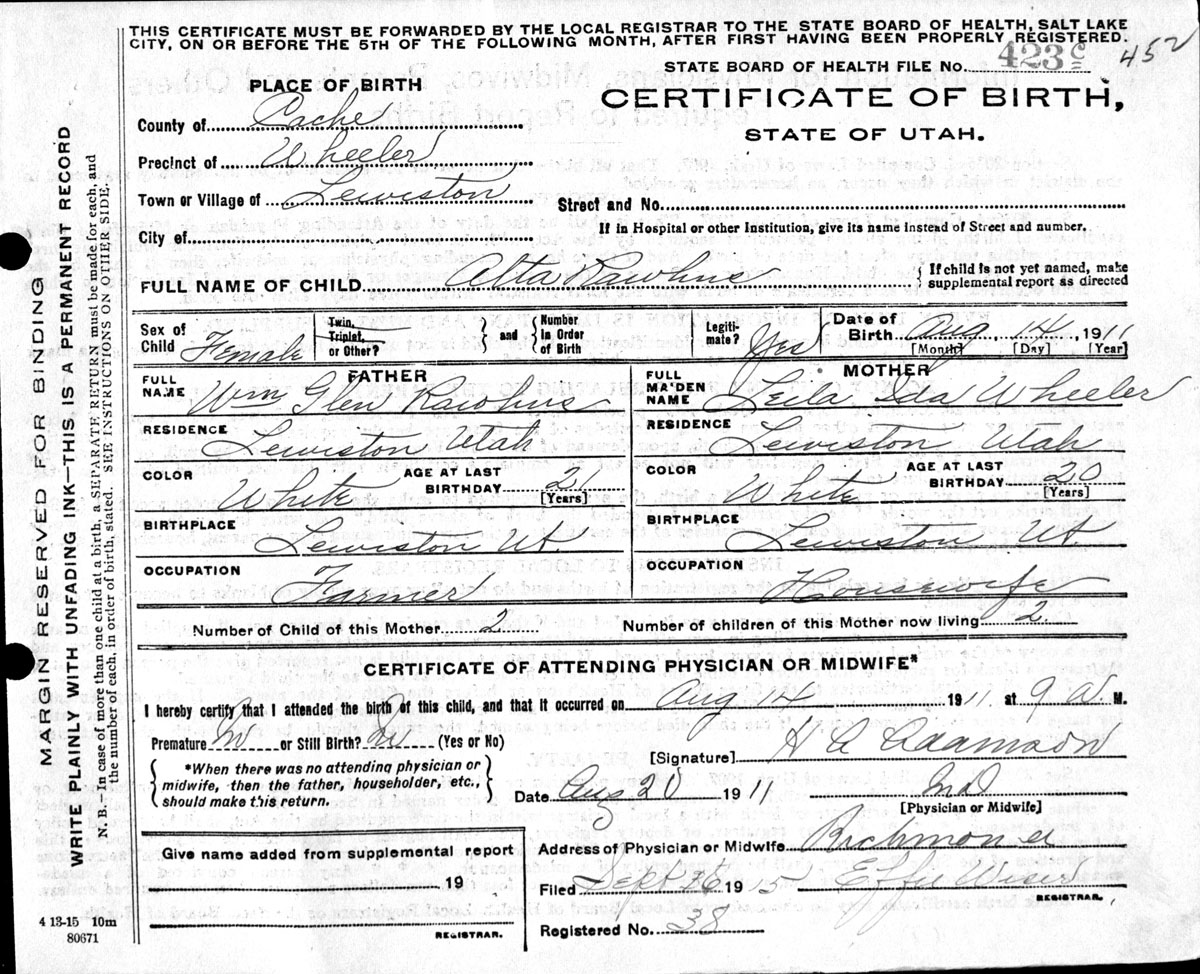 THIS CERTIFICATE MUST BE FORWARDED BY THE LOCAL REGISTRAR TO THE STATE BOARD OF HEALTH, SALT LAKE
CITY, ON OR BEFORE THE 5TH OF THE FOLLOWING MONTH, AFTER FIRST HAVING BEEN PROPERLY REGISTERED.
STATE BOARD OF HEALTH FILE NO. 423 c 452
PLACE OF BIRTH
CERTIFICATE OF BIRTH,
STATE OF UTAH.
County of Cache
Precinct of Wheeler
Town or Village of Lewiston
Street and No.
City of
If in Hospital or other Institution, give its name instead of Street and number.
FULL NAME OF CHILD Alta Rawlins
If child is not yet named, make
supplemental report as directed
Sex of Child Female
Twin, Triplet, or Other?
and
Number in Order of Birth
Legiti- mate? Yes
Date of Birth Aug 14 1911
[Month] [Day] [Year]
FATHER
FULL NAME Wm Glen Rawlins
RESIDENCE Lewiston Utah
COLOR White
AGE AT LAST BIRTHDAY 21
[Years]
BIRTHPLACE Lewiston Ut.
OCCUPATION Farmer
MOTHER
FULL MAIDEN NAME Leila Ida Wheeler
RESIDENCE Lewiston Utah
COLOR White
AGE AT LAST BIRTHDAY 20
[Years]
BIRTHPLACE Lewiston Ut
OCCUPATION Housewife
Number of Child of this Mother 2
Number of children of this Mother now living 2
CERTIFICATE OF ATTENDING PHYSICIAN OR MIDWIFE*
I hereby certify that I attended the birth of this child, and that it occurred on Aug 14 1911 at 9 a. M.
Premature No or Still Birth? no (Yes or No)
*When there was no attending physician or
midwife, then the father, householder, etc.,
should make this return.
[Signature] H A Adamson
Date Aug 20 1911 Md
[Physician or Midwife]
Give name added from supplemental report
19
REGISTRAR.
Address of Physician or Midwife Richmond
Filed Sept 26 1915 Effie Wiser
REGISTRAR.
Registered No. 38
4 13-15 10m
80671
MARGIN RESERVED FOR BINDING
WRITE PLAINLY WITH UNFADING INK—THIS IS A PERMANENT RECORD
N. B.—In case of more than one child at a birth, a SEPARATE RETURN must be made for each, and
the number of each, in order of birth, stated. SEE INSTRUCTIONS ON OTHER SIDE.